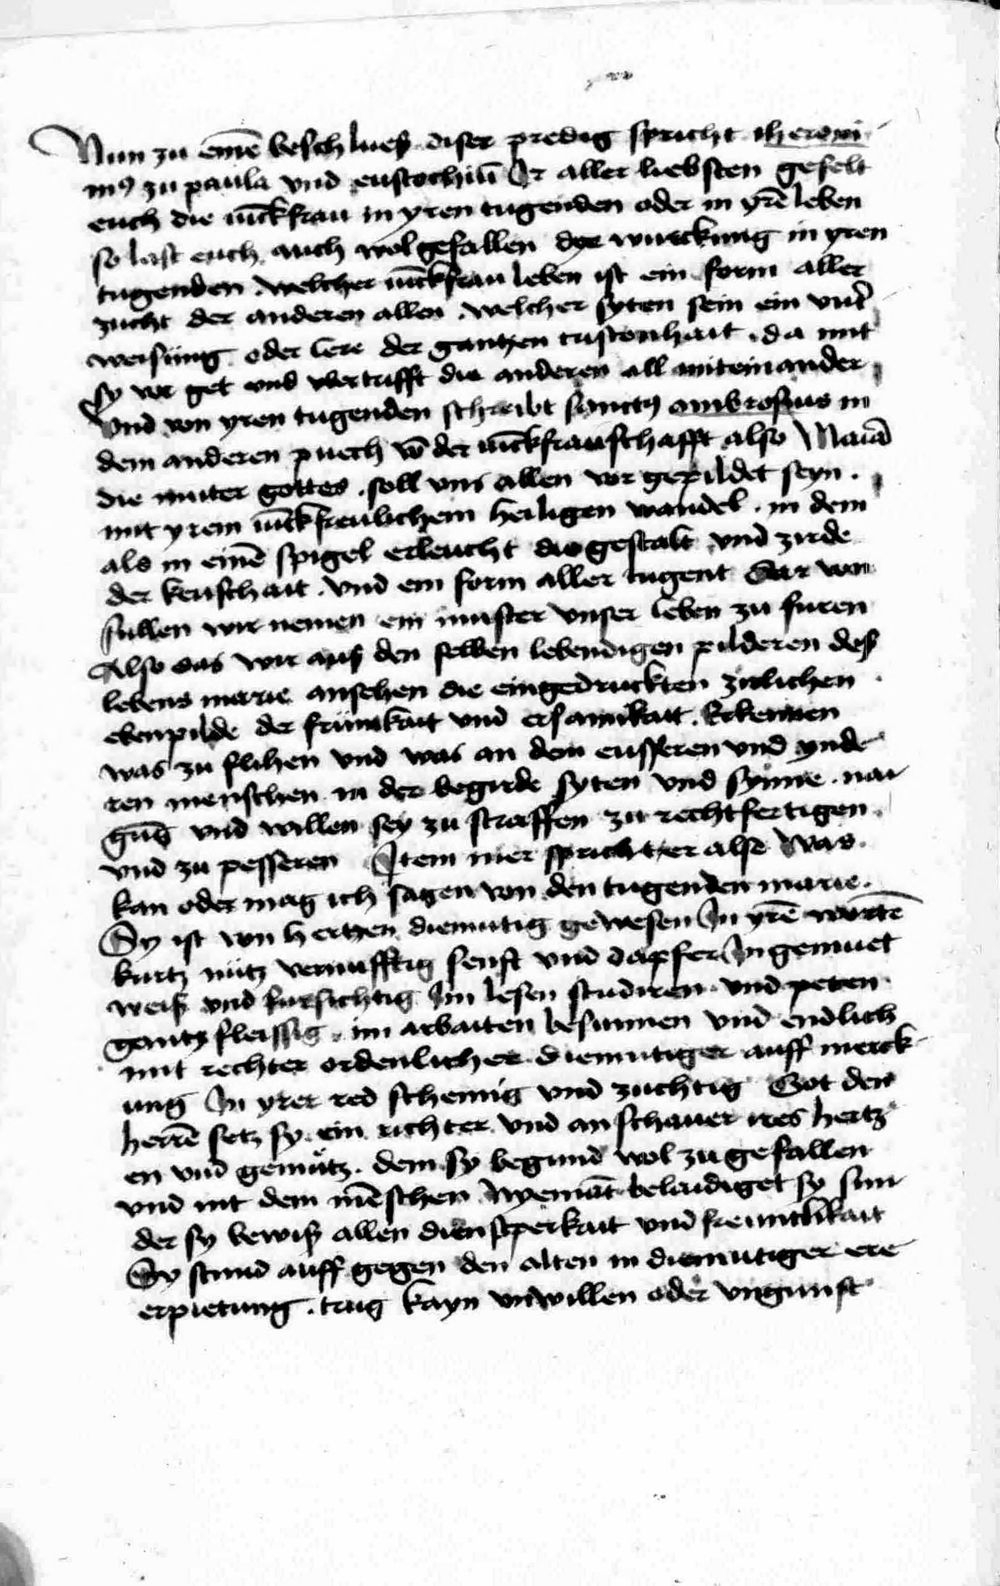 Nun zu einē beschlues diser predig spricht iheroni
mꝰ zu paula vnd eustochiū Ir aller liebsten gefelt
euch die iūckfrau in yren tugenden oder in yrē leben
so last euch auch wol gefallen dye wurckung in yren
tugenden welcher iūckfrau leben ist ein form aller
zucht der anderen allen welcher syten sein ein vnt͛
weisung oder lere der gantzen cristenhait da mit
sy vor get vnd vbertrifft die anderen all miteinander
Vnd von yren tugenden schreibt sanctꝰ ambrosius in
dem anderen puech vō der iūckfrauschafft also Mariā
die muter gottes soll vns allen vor gepildet seyn
mit yrem iūckfreulichem heiligen wandel in dem
als in einē spigel erleucht die gestalt vnd zirde
der keuschait vnd ein form aller tugent Dar von
sullen wir nemen ein muster vnser leben zu furen
Also das wir aus den selben lebendigen pilderen des
lebens marie ansehen die eingedruckten zirlichen
ebenpilde der frümkait vnd ersamikait Erkennen
was zu flihen vnd was an dem eusseren vnd ynde
ren menschen in der begirde syten vnd synne nai
gūg vnd willen sey zu straffen zu rechtfertigen
vnd zu pesseren Item mer spricht er also Was
kan oder mag ich sagen von den tugenden marie
Sy ist von hertzen diemutig gewesen In yrē wortē
kurtz nütz vernufftig senft vnd dapfer In gemuet
weis vnd fursichtig Im lesen studiren vnd peten
gantz fleissig im arbaiten besunnen vnd endlich
mit rechter ordenlicher diemutiger auff merck
ung In yrer red schemig vnd zuchtig Got den
herrē setz sy ein richter vnd anschauer ires hertz
en vnd gemütz dem sy begund wol zu gefallen
vnd nit dem mēschen Nyemāt belaidiget sy sun
der sy bewis allen dienstperkait vnd freuntlikait
Sy stund auff gegen den alten in diemutiger ere
erpietung trug kayn vnwillen oder vngunst